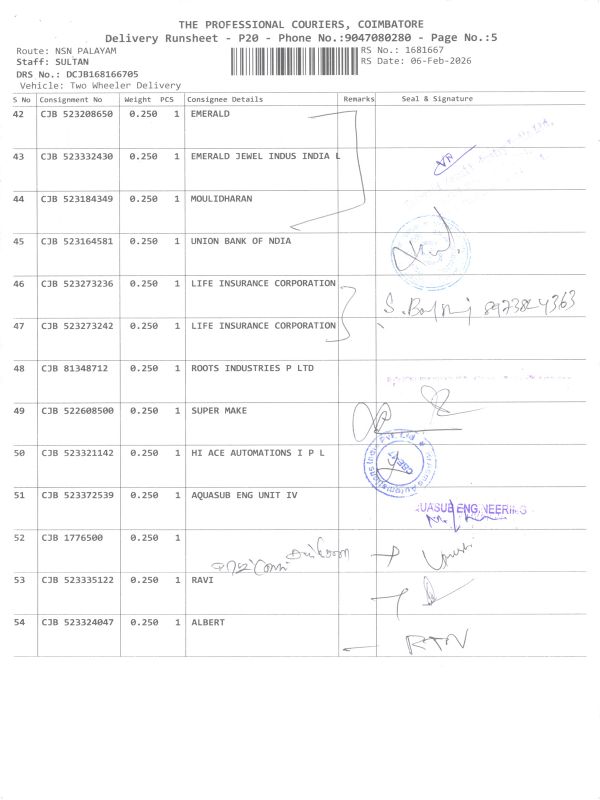 THE PROFESSIONAL COURIERS, COIMBATORE
Delivery Runsheet - P20 - Phone No.:9047080280 - Page No.:5
Route: NSN PALAYAM
RS No.: 1681667
Staff: SULTAN
RS Date: 06-Feb-2026
DRS No.: DCJB168166705
Vehicle: Two Wheeler Delivery
S No Consignment No Weight PCS Consignee Details Remarks Seal & Signature
42 CJB 523208650 0.250 1 EMERALD
43 CJB 523332430 0.250 1 EMERALD JEWEL INDUS INDIA L
44 CJB 523184349 0.250 1 MOULIDHARAN
45 CJB 523164581 0.250 1 UNION BANK OF NDIA
46 CJB 523273236 0.250 1 LIFE INSURANCE CORPORATION
8973824363
47 CJB 523273242 0.250 1 LIFE INSURANCE CORPORATION
48 CJB 81348712 0.250 1 ROOTS INDUSTRIES P LTD
49 CJB 522608500 0.250 1 SUPER MAKE
50 CJB 523321142 0.250 1 HI ACE AUTOMATIONS I P L
51 CJB 523372539 0.250 1 AQUASUB ENG UNIT IV
QUASUB ENGINEERING
52 CJB 1776500 0.250 1
53 CJB 523335122 0.250 1 RAVI
54 CJB 523324047 0.250 1 ALBERT